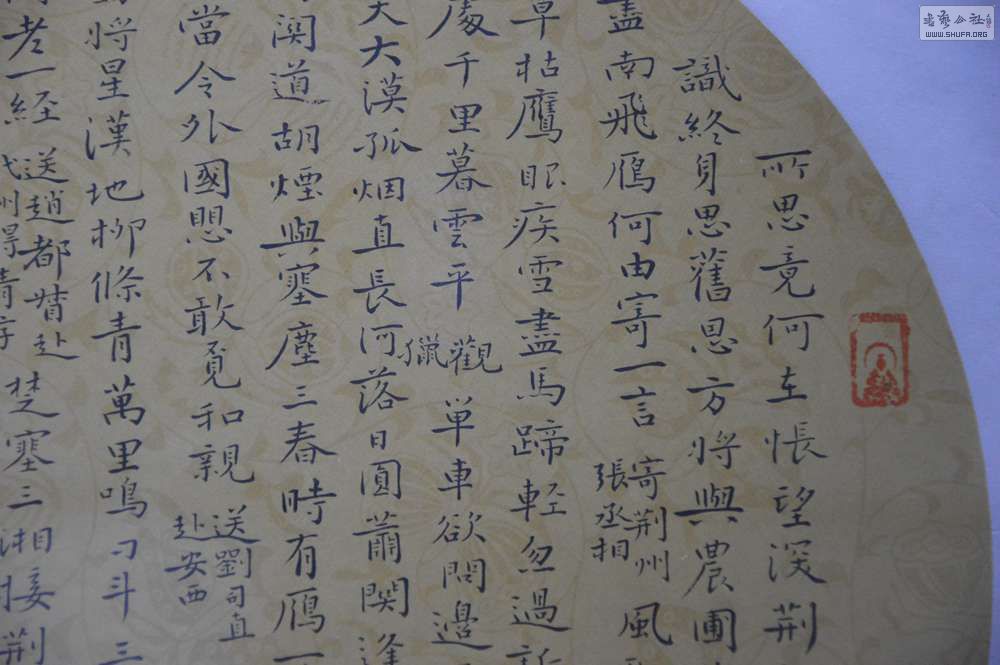 所思竟何在悵望深荆
識終身思舊恩方將與農圃
盡南飛鴈何由寄一言
寄荆州
張丞相
風
草枯鷹眼疾雪盡馬蹄輕忽過新
處千里暮雲平
觀
獵
単車欲問邊
天大漠孤烟直長河落日圓蕭関逢
関道胡煙與塞塵三春時有鴈一
當令外國愳不敢覓和親
送劉司直
赴安西
將星漢地栁條青萬里鳴刁斗三
老一经
送趙都督赴
代州得青字
楚塞三湘接荆
書藝公社
WWW.SHUFA.ORG